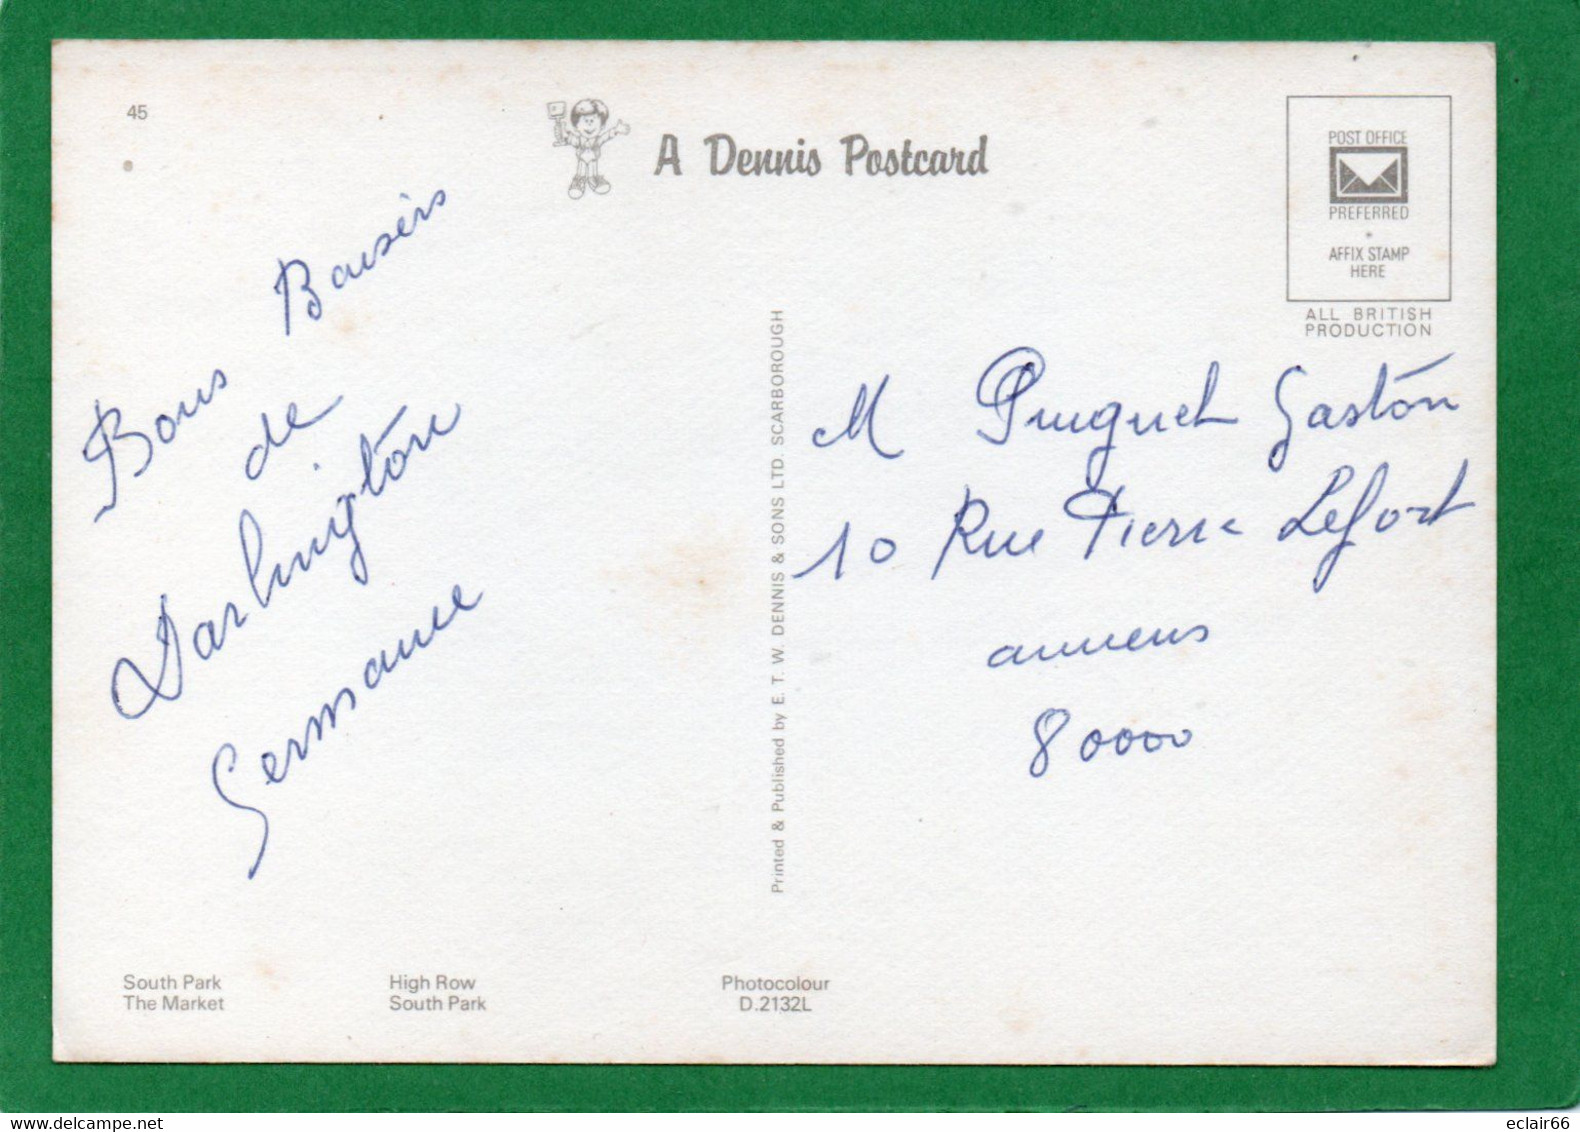 45
A Dennis Postcard
POST OFFICE
PREFERRED
AFFIX STAMP
HERE
ALL BRITISH
PRODUCTION
Bons Baisers
de
Darlington
Germaine
Printed & Published by E. T. W. DENNIS & SONS LTD. SCARBOROUGH
M Puiguet Gaston
10 Rue Pierre Lefort
amiens
80000
South Park
The Market
High Row
South Park
Photocolour
D.2132L
eclair66